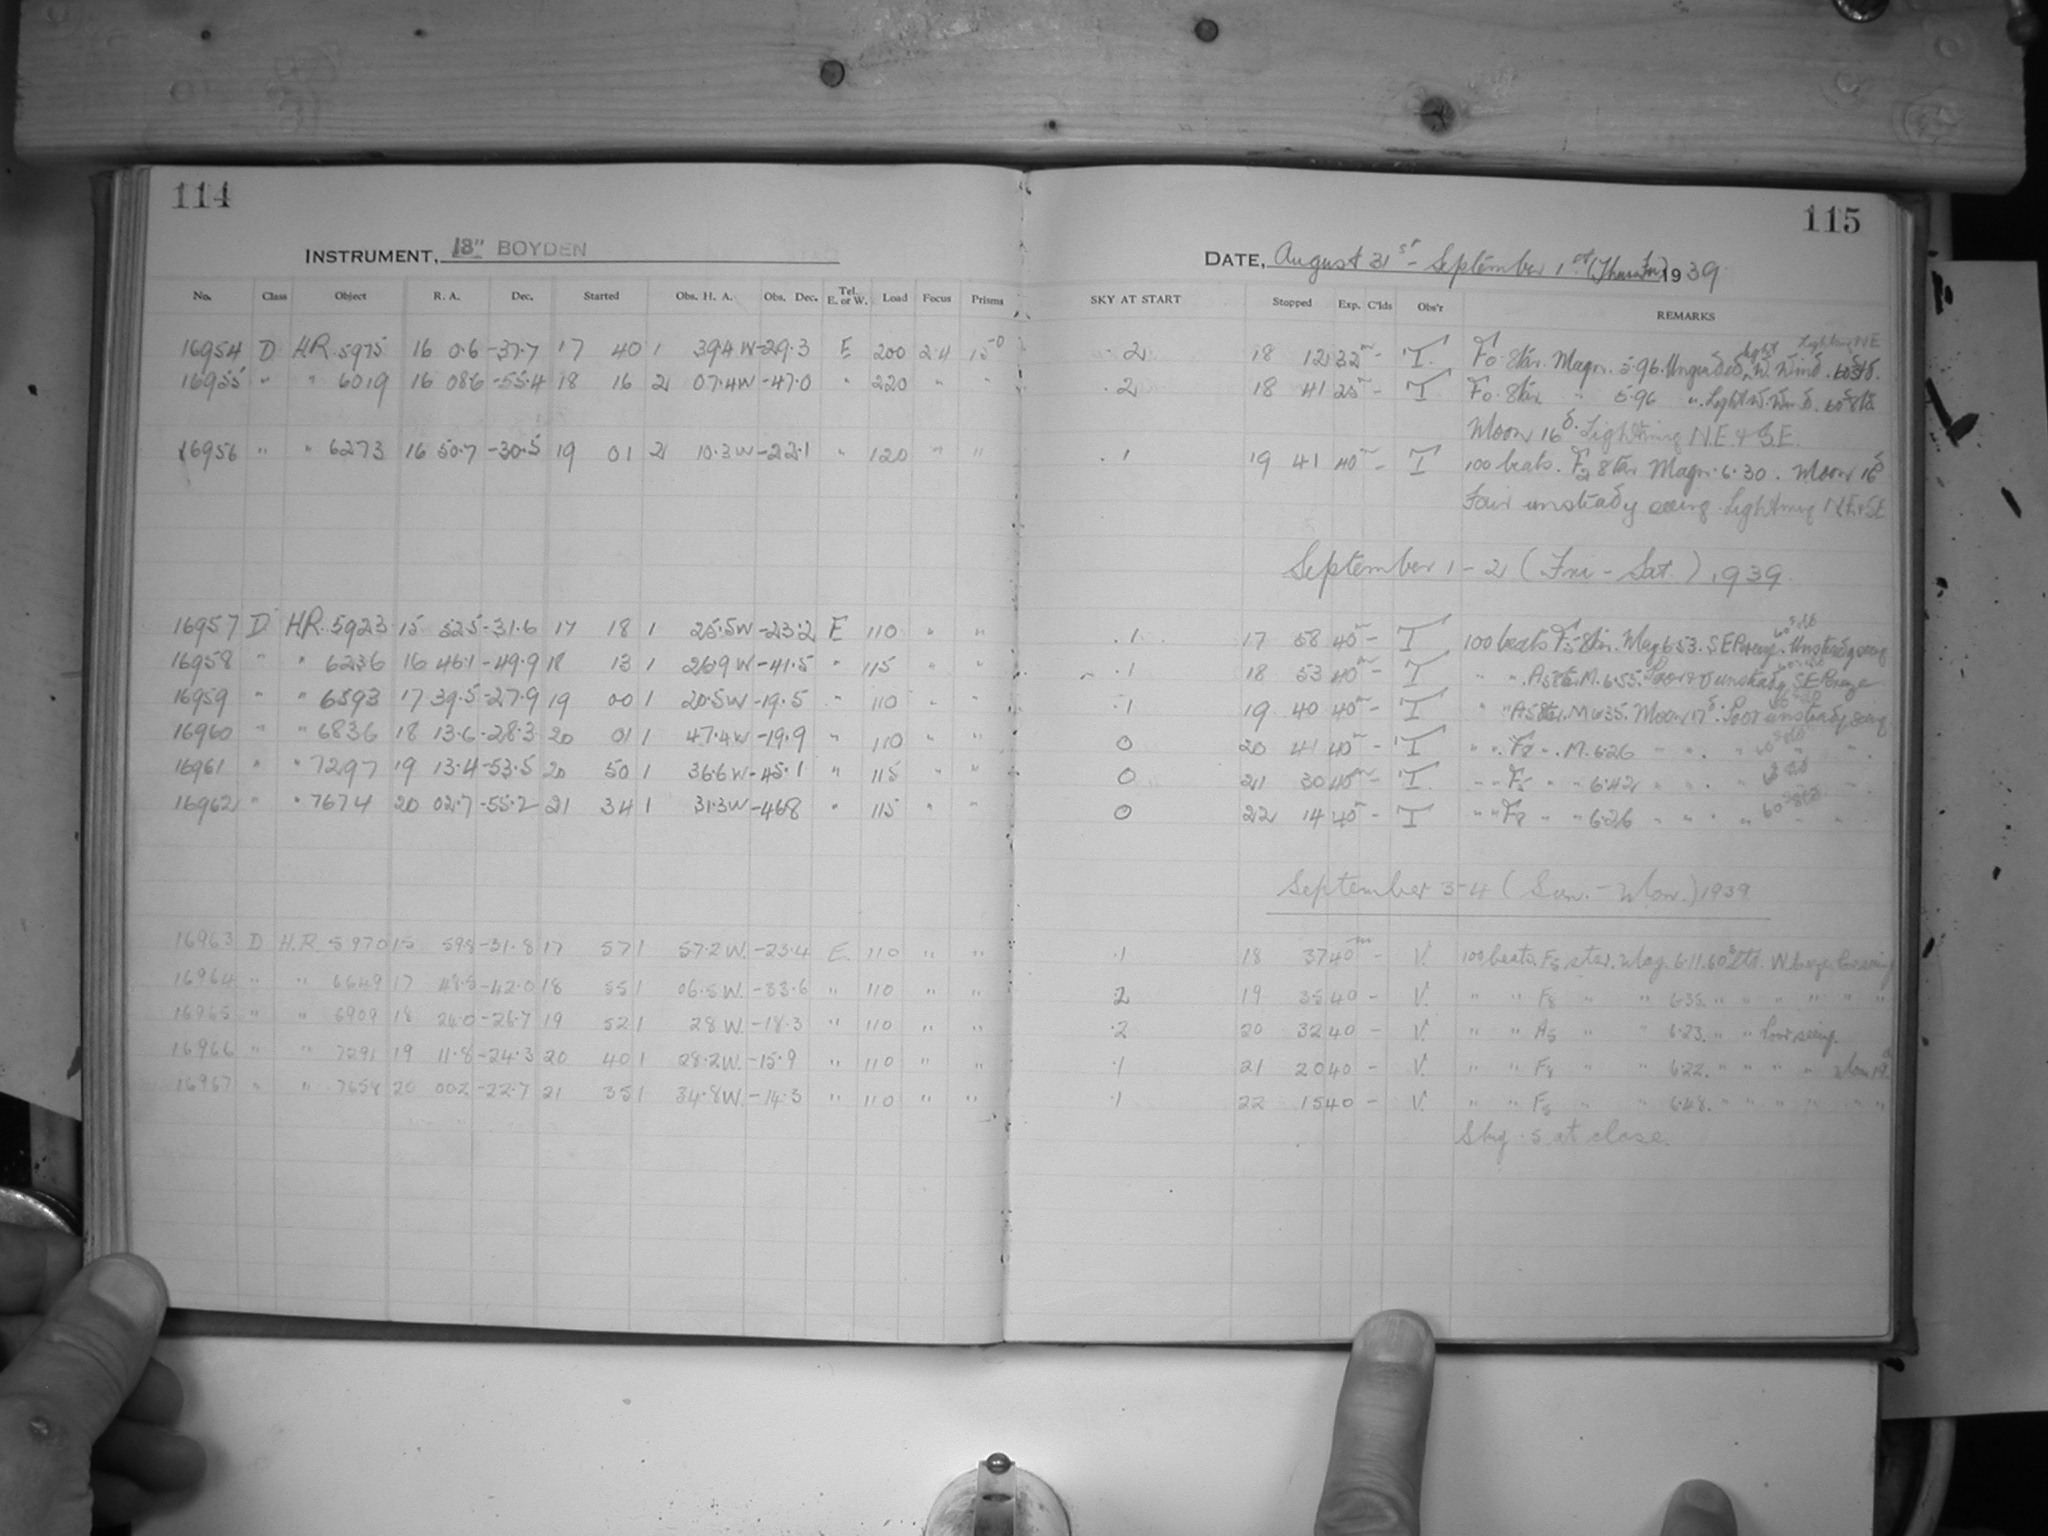 114
115
INSTRUMENT, 18" BOYDEN
DATE, August 31st - September 1st (Thurs-Fri) 1939
No. Class Object R. A. Dec. Started Obs. H. A. Obs. Dec. Tel. E. or W. Load Focus Prisms SKY AT START Stopped Exp. C'lds Obs'r REMARKS
Lightning NE
16954 D HR 5975 16 0.6 -37.7 17 40 1 39.4 W -29.3 E 200 2.4 15° .2 18 12 32m - T. F0 Star. Magn. 5.96. Unguided, light W. Wind.
16955 " " 6019 16 08.6 -55.4 18 16 2 07.4W -47.0 " 220 " " .2 18 41 25m - T F0 Star " 5.96 " Light W. Wind.
Moon 16d. Lightning N.E. & S.E.
16956 " " 6273 16 50.7 -30.5 19 01 2 10.3W -22.1 " 120 " " .1 19 41 40m - T 100 beats. F2 Star Magn. 6.30. Moon 16d
Fair unsteady seeing. Lightning N.E. & S.E
September 1-2 (Fri - Sat.) 1939.
16957 D HR. 5923 15 52.5 -31.6 17 18 1 25.5W -23.2 E 110 " " .1 17 58 40m - T 100 beats F5 Star. Mag 6.53. S E Breeze. Unsteady seeing
16958 " " 6236 16 46.1 -49.9 18 13 1 26.9 W -41.5 " 115 " " .1 18 53 40m - T " " A5 Star. M. 6.55. Poor & unsteady SE Breeze
16959 " " 6593 17 39.5 -27.9 19 00 1 20.5W -19.5 " 110 " " .1 19 40 40m - T " " A5 Star. M 6.35. Moon 17d. Poor unsteady seeing
16960 " " 6836 18 13.6 -28.3 20 01 1 47.4W -19.9 " 110 " " 0 20 41 40m - T " " F8 " M. 6.26 " " "
16961 " " 7297 19 13.4 -53.5 20 50 1 36.6W -45.1 " 115 " " 0 21 30 40m - T. " " F5 " " 6.42 " " "
16962 " " 7674 20 02.7 -55.2 21 34 1 31.3W -46.8 " 115 " " 0 22 14 40m - T " " F8 " " 6.26 " " " "
September 3-4 (Sun. - Mon.) 1939
16963 D H.R. 5970 15 59.8 -31.8 17 57 1 57.2 W. -23.4 E. 110 " " .1 18 37 40m - V. 100 beats. F5 star. Mag. 6.11. 60s Std. W. breeze Poor seeing
16964 " " 6649 17 48.5 -42.0 18 55 1 06.5 W. -33.6 " 110 " " 2 19 35 40 - V. " " F8 " " 6.35. " " " " " "
16965 " " 6909 18 24.0 -26.7 19 52 1 28 W. -18.3 " 110 " " .2 20 32 40 - V. " " A5 " " 6.23. " " Poor seeing.
16966 " " 7291 19 11.8 -24.3 20 40 1 28.2W. -15.9 " 110 " " .1 21 20 40 - V. " " F8 " " 6.22. " " " " Moon 19d.
16967 " " 7658 20 00.2 -22.7 21 35 1 34.8W. -14.3 " 110 " " .1 22 15 40 - V. " " F5 " " 6.48. " " " " " "
Sky .5 at close.